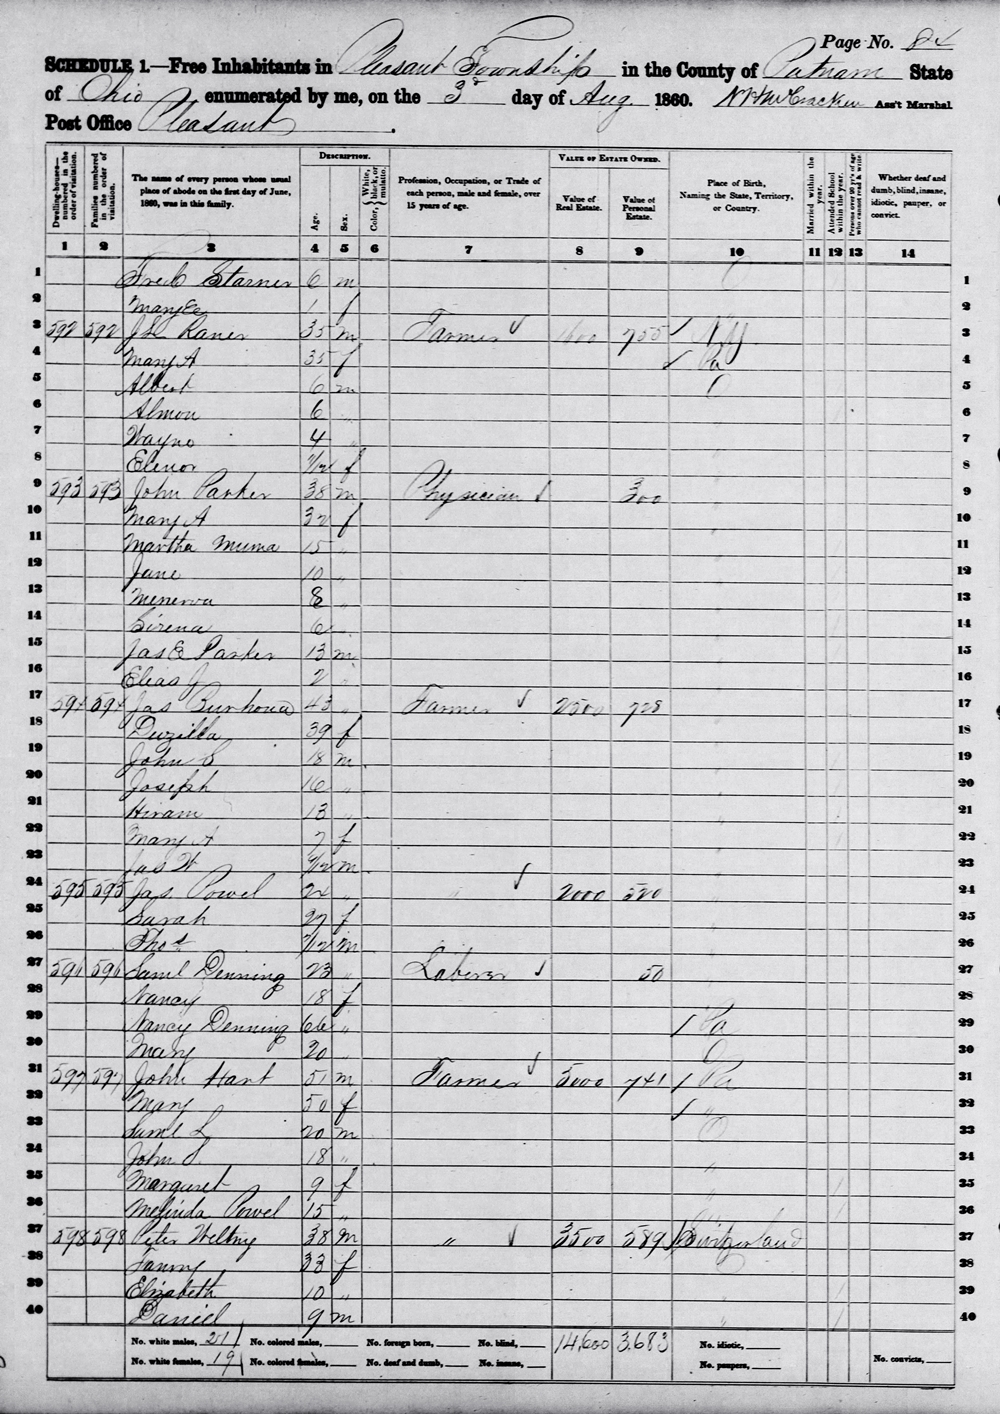 Page No. 84
SCHEDULE 1.—Free Inhabitants in Pleasant Township in the County of Putnam State
of Ohio enumerated by me, on the 3d day of Aug 1860. Ass't Marshal
Post Office Pleasant.
Dwelling-houses—numbered in the order of visitation.
Families numbered in the order of visitation.
The name of every person whose usual place of abode on the first day of June, 1860, was in this family.
DESCRIPTION.
Age.
Sex.
Color, White, black, or mulatto.
Profession, Occupation, or Trade of each person, male and female, over 15 years of age.
VALUE OF ESTATE OWNED.
Value of Real Estate.
Value of Personal Estate.
Place of Birth, Naming the State, Territory, or Country.
Married within the year.
Attended School within the year.
Persons over 20 y'rs of age who cannot read & write
Whether deaf and dumb, blind, insane, idiotic, pauper, or convict.
1 2 3 4 5 6 7 8 9 10 11 12 13 14
1 Fred Starner 6 m 1
2 Mary 1 f 2
3 592 592 J L Raner 35 m Farmer 1600 755 NY 3
4 Mary A 35 f Pa 4
5 Albert 6 m O 5
6 Almon 6 " 6
7 Wayne 4 " 7
8 Elenor 7/12 f 8
9 593 593 John Parker 38 m Physician 300 " 9
10 Mary A 32 f " 10
11 Martha Muma 15 " 11
12 Jane 10 " " 12
13 Menerva 8 " 13
14 Sirena 6 " 14
15 Jas E Parker 13 m " 15
16 Elias J 2 " 16
17 594 594 Jas 43 " Farmer 2500 728 17
18 Druzilla 39 f " 18
19 John S 18 m 19
20 Joseph 16 " " 20
21 Hiram 13 " " 21
22 Mary A 7 f " 22
23 Jas W 7/12 m 23
24 595 595 Jas. Powel 24 " " 2000 520 " 24
25 Sarah 27 f 25
26 Thos 7/12 m 26
27 596 596 Saml Denning 23 " Laborer 50 27
28 Nancy 18 f " 28
29 Nancy Denning 66 " Pa 29
30 Mary 20 " O 30
31 597 597 John Hart 51 m Farmer 5000 741 Pa 31
32 Mary 50 f " 32
33 Saml L 20 m O 33
34 John S. 18 " " 34
35 Margaret 9 f " 35
36 Melinda Powel 15 " " 36
37 598 598 Peter 38 m " 3500 589 Switzerland 37
38 Fanny 33 f O 38
39 Elizabeth 10 " " 39
40 Daniel 9 m " 40
No. white males, 21 No. colored males, No. foreign born, No. blind, 14,600 3,683 No. idiotic,
No. white females, 19 No. colored females, No. deaf and dumb, No. insane, No. paupers, No. convicts,